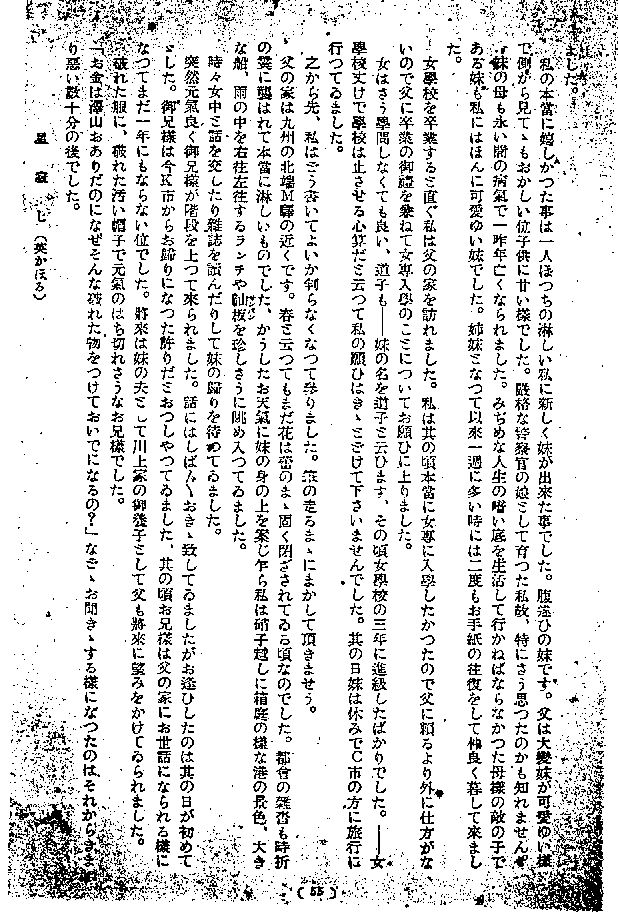 ました。
私の本當に嬉しかつた事は一人ぼつちの淋しい私に新しく妹が出來た事でした。腹違ひの妹です。父は大變妹が可愛ゆい樣
で側から見てゝもおかしい位子供に甘い樣でした。嚴格な警察官の娘として育つた私故、特にさう思つたのかも知れません。
妹の母も永い間の病氣で一昨年亡くなられました。みぢめな人生の暗い底を生活して行かねばならなかつた母樣の敵の子で
ある妹も私にはほんに可愛ゆい妹でした。姉妹となつて以來一週に多い時には二度もお手紙の往復をして仲良く暮して來まし
た。
女學校を卒業すると直ぐ私は父の家を訪れました。私は其の頃本當に女專に入學したかつたので父に賴るより外に仕方がな
いので父に卒業の御禮を兼ねて女專入學のことについてお願ひに上りました。
女はさう學問しなくても良い、道子も――妹の名を道子と云ひます、その頃女學校の三年に進級したばかりでした。――女
學校丈けで學校は止させる心算だと云つて私の願ひはきゝとどけて下さいませんでした。其の日妹は休みでC市の方に旅行に
行つてゐました。
之から先、私はどう書いてよいか判らなくなつて參りました。筆の走るまゝにまかして頂きませう。
父の家は九州の北端M驛の近くです。春と云つてもまだ花は蕾のまゝ固く閉ざされてゐる頃なのでした。都會の雜沓も時折
の雲に襲はれて本當に淋しいものでした、かうしたお天氣に妹の身の上を案じ乍ら私は硝子越しに箱庭の樣な港の景色、大き
な船、雨の中を右往左往するランチや舢板を珍しさうに眺め入つてゐました。
時々女中と話を交したり雜誌を讀んだりして妹の歸りを待めてゐました。
突然元氣良く御兄樣が階段を上つて來られました。話にはしば〳〵おきゝ致してゐましたがお逢ひしたのは其の日が初めて
でした。御兄樣は今K市からお歸りになつた許りだとおつしやつてゐました、其の頃お兄樣は父の家にお世話になられる樣に
なつてまだ一年にもならない位でした。將來は妹の夫として川上家の御養子として父も將來に望みをかけてゐられました。
破れた服に、破れた汚い帽子で元氣のはち切れさうなお兄樣でした。
「お金は澤山おありだのになぜそんな破れた物をつけておいでになるの？」などゝお聞きゝする樣になつたのは、それからあま
り惡い數十分の後でした。
星寂し（英かほる）
(55)